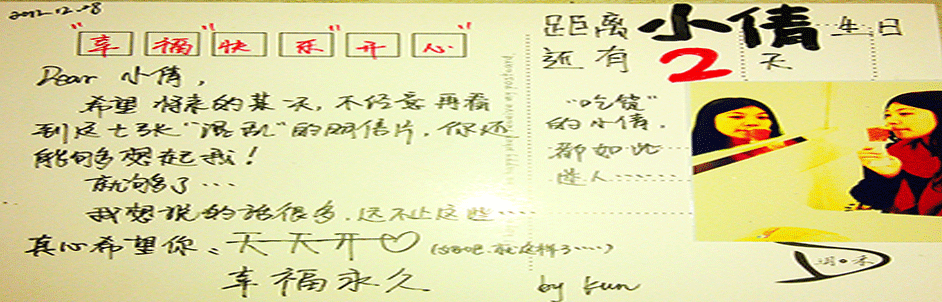 2012.12.08
"幸福""快乐""开心"
Dear 小倩,
希望将来的某天,不经意再看
到这十3张"混乱"的明信片,你还
能够想起我!
就够了...
我想说的话很多,远不止这些...
真心希望你:天天开♡(好吧,就这样了.....)
幸福永久
by kun
距离小倩生日
还有2天
"吃镜"
的小倩,
都如此
迷人......